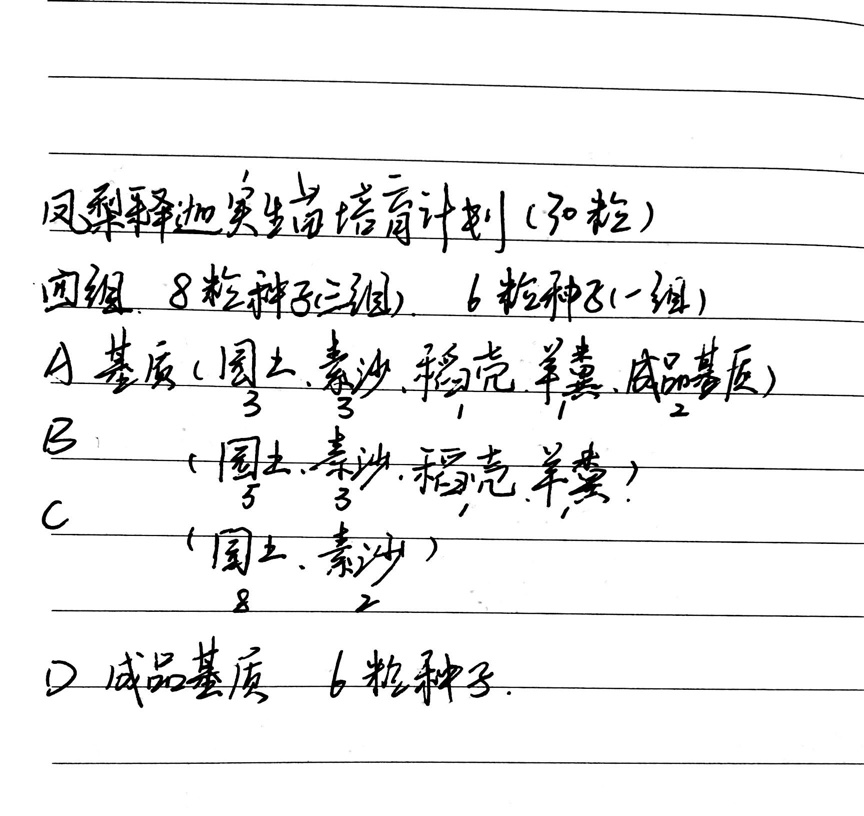 凤梨释迦实生苗培育计划(30粒)
四组. 8粒种子(三组). 6粒种子(一组)
A 基质(园土、素沙、稻壳、羊粪、成品基质)
3 3 1 1 2
B (园土、素沙、稻壳、羊粪)
5 3 1 1
C (园土、素沙)
8 2
D 成品基质 6粒种子.